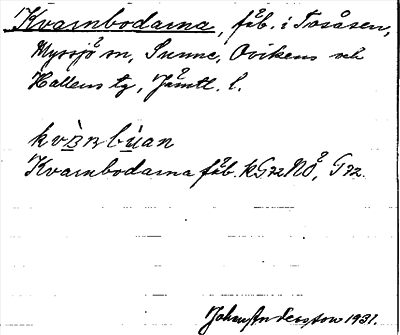 Kvarnbodarna, fäb. i Tosåsen,
Myssjö sn, Sunne, Ovikens och
Hallens tg, Jämtl. l.
kvὰrnbùan
Kvarnbodarna fäb. kG72NÖ, G72.
Johan Anderstow 1931.